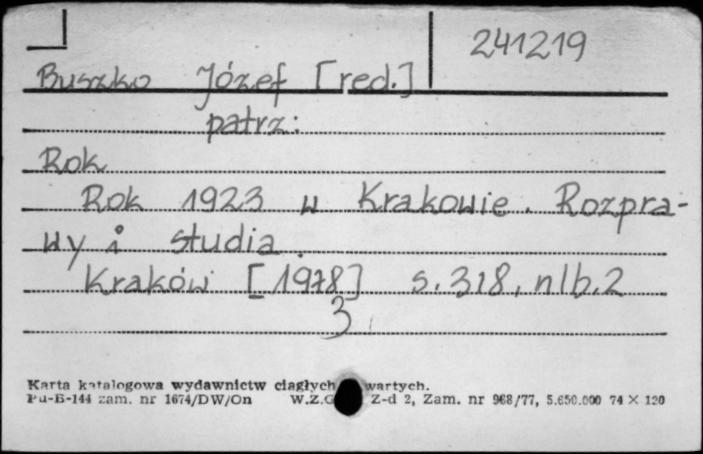 241219
Buszko Józef [red.]
patrz:
Rok
Rok 1923 w Krakowie. Rozpra-
wy i studia.
Kraków [1978] s. 318, nlb. 2
3
Karta katalogowa wydawnictw ciągłych wartych.
Pu-B-144 zam. nr 1674/DW/On W.Z.G Z-d 2, Zam. nr 968/77, 5.650.000 74 × 120